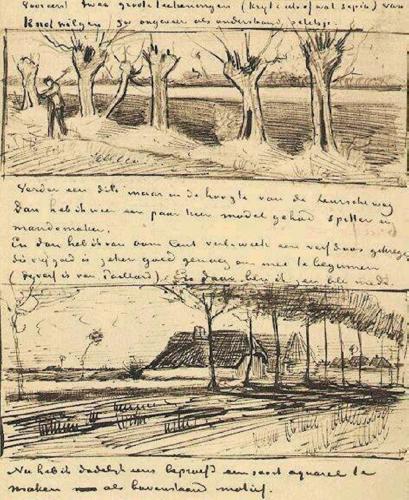 Vooreerst twee groote teekeningen (krijt en wat sepia) van
Knotwilgen, zoo ongeveer als onderstaand
Verder een dito maar in de hoogte van de Leursche weg
Dan heb ik weer een paar keer model gehad spitter en
mandemaker.
En dan heb ik van oom Cent verl. week een verfdoos gekregen
die vrij goed is zeker goed genoeg om mee te beginnen
(de verf is van Paillard). En daar ben ik zeer blij mede.
Nu heb ik dadelijk eens beproefd een soort aquarel te
maken als bovenstaand motief.